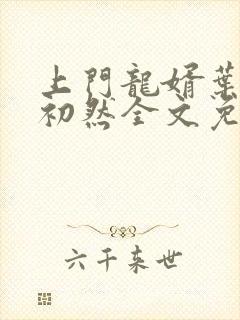 上門龍婿葉
初然全文免
六千来世